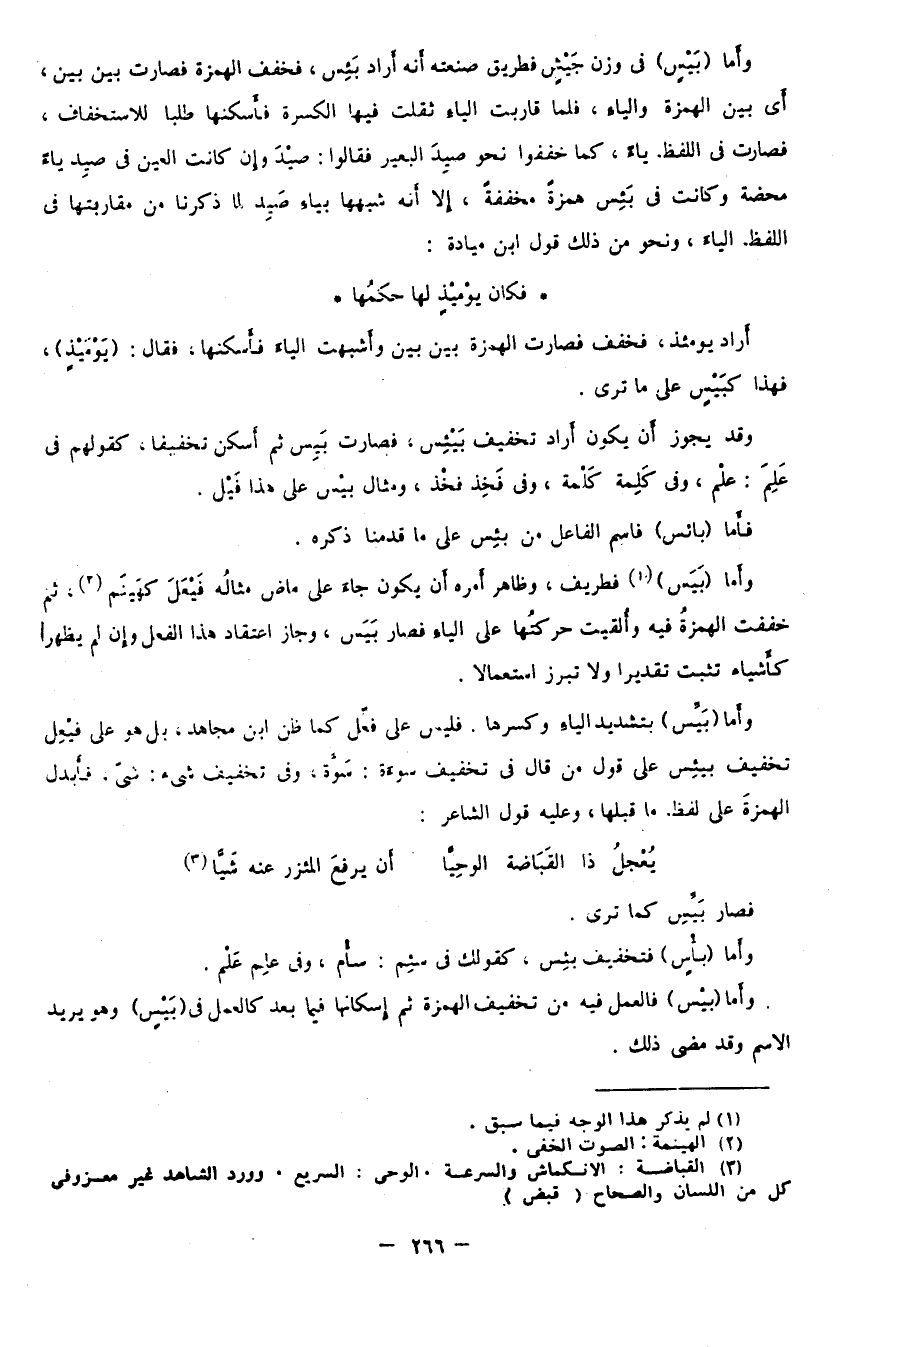 وأما (بَيْسٍ) فى وزن جَيْشٍ فطريق صنعته أنه أراد بَئِس ، فخفف الهمزة فصارت بين بين ،
أى بين الهمزة والياء ، فلما قاربت الياء ثقلت فيها الكسرة فأسكنها طلبا للاستخفاف ،
فصارت فى اللفظ. ياءً ، كما خففوا نحو صيِدَ البعير فقالوا : صيْدَ وإن كانت العين فى صيِد ياءً
محضة وكانت فى بَئِس همزةً مخففةً ، إلا أنه شبهها بياءِ صَيِد لما ذكرنا من مقاربتها فى
اللفظ. الياءَ ، ونحو من ذلك قول ابن ميادة :
* فكان يوْميْذٍ لها حكمُها *
أراد يومئذ ، فخفف فصارت الهمزة بين بين وأشبهت الياءَ فأسكنها ، فقال : (يَوْمَيْذٍ) ،
فهذا كبَيْسٍ على ما ترى .
وقد يجوز أن يكون أراد تخفيف بَيْئِس ، فصارت بَيِس ثم أسكن تخفيفا ، كقولهم فى
عَلِمَ : علْم ، وفى كَلِمة كَلْمة ، وفى فَخِذ فخْذ ، ومثال بيْس على هذا فَيْل .
فأما (بائس) فاسم الفاعل من بئِس على ما قدمنا ذكره .
وأما (بَيَس)(١) فطريف ، وظاهر أمره أن يكون جاءَ على ماض مثالُه فَيْعَلَ كهَينَم (٢) ، ثم
خففت الهمزةُ فيه وأُلقيت حركتُها على الياءِ فصار بَيَس ، وجاز اعتقاد هذا الفعل وإن لم يظهر
كأشياء تثبت تقديرا ولا تبرز استعمالا .
وأما (بَيِّس) بتشديد الياءِ وكسرها . فليس على فعَّل كما ظن ابن مجاهد ، بل هو على فيْعِل
تخفيف بيئِس على قول من قال فى تخفيف سوءَة : سَوَّة ، وفى تخفيف شىء : شىّ . فأبدل
الهمزةَ على لفظ. ما قبلها ، وعليه قول الشاعر :
يُعْجلُ ذا القَبَاضة الوحِيَّا أن يرفعَ المئزر عنه شَيَّا (٣)
فصار بَيِّس كما ترى .
وأما (بأْسٍ) فتخفيف بئِس ، كقولك فى سئِم : سأْم ، وفى علِم عَلْم .
وأما (بيْس) فالعمل فيه من تخفيف الهمزة ثم إسكانها فيما بعد كالعمل فى (بَيْسٍ) وهو يريد
الاسم وقد مضى ذلك .
(١) لم يذكر هذا الوجه فيما سبق .
(٢) الهينمة : الصوت الخفى .
(٣) القباضة : الانكماش والسرعة . الوحى : السريع . وورد الشاهد غير معزو فى
كل من اللسان والصحاح ( قبض )
— ٢٦٦ —